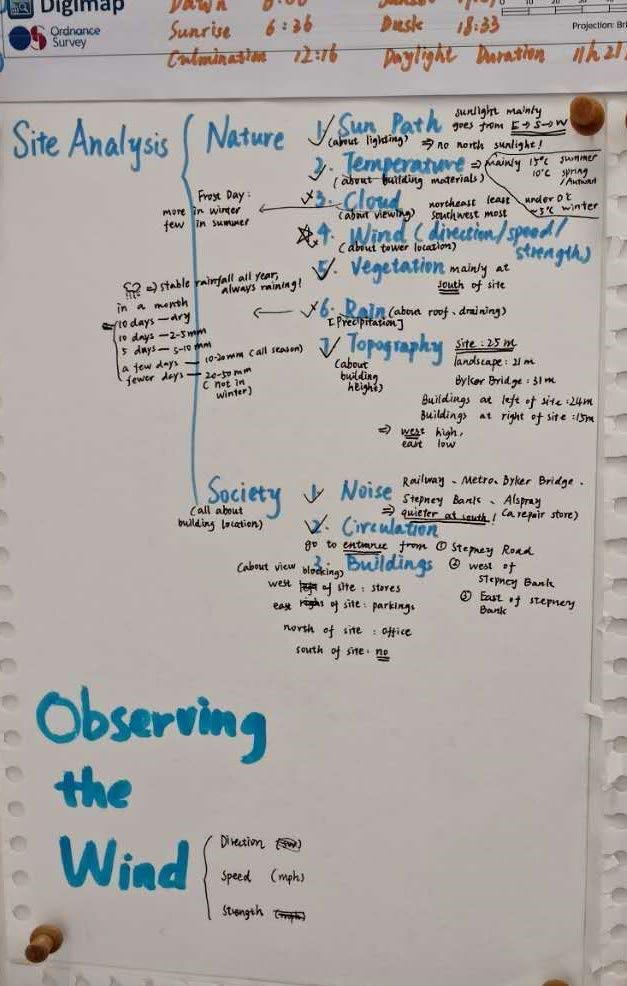 Digimap
Ordnance
Survey
Dawn
Sunrise 6:36
Dusk 18:33
Culmination 12:16
Daylight Duration
Projection: Bri
Site Analysis
Nature
1. Sun Path
(about lighting)
sunlight mainly
goes from E→S→W
⇒ no north sunlight!
2. Temperature
(about building materials)
⇒ mainly 15°c summer
10°c spring
/Autumn
under 0°c
~3°c winter
3. Cloud
(about viewing)
northeast least
southwest most
Frost Day:
more in winter
few in summer
4. Wind (direction/speed/
strength)
(about tower location)
5. Vegetation mainly at
south of site
6. Rain (about roof、draining)
[Precipitation]
⇒ stable rainfall all year,
always raining!
in a month
10 days — dry
10 days — 2-5mm
5 days — 5-10mm
a few days — 10-20mm (all season)
fewer days — 20-50mm
(not in
winter)
7. Topography
(about
building
height)
Site: 25m
landscape: 21m
Byker Bridge: 31m
Buildings at left of site: 24m
Buildings at right of site: 15m
⇒ west high,
east low
Society
(all about
building location)
1. Noise
Railway、Metro、Byker Bridge、
Stepney Bank、Alspray
(a repair store)
⇒ quieter at south!
2. Circulation
go to entrance from ① Stepney Road
② west of
Stepney Bank
③ East of stepney
Bank
3. Buildings
(about view
blocking)
west left of site: stores
east right of site: parkings
north of site: office
south of site: no
Observing
the
Wind
Direction (sw)
Speed (mph)
Strength (mph)